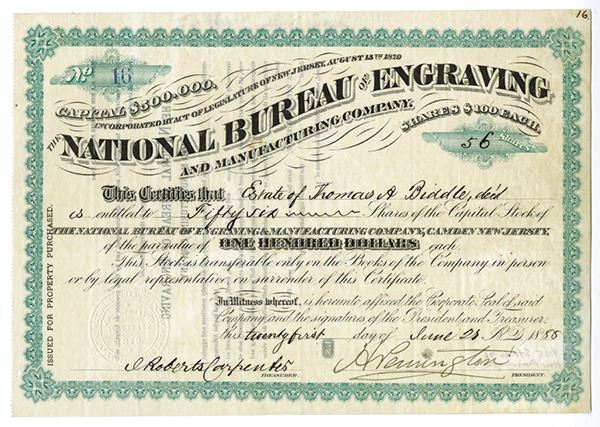 16.
No 16
CAPITAL $500.000.
INCORPORATED BY ACT OF LEGISLATURE OF NEW JERSEY, AUGUST 15TH 1879
THE NATIONAL BUREAU OF ENGRAVING
AND MANUFACTURING COMPANY.
SHARES $100 EACH.
56 Shares
This Certifies that Estate of Thomas A Biddle, dec'd
is entitled to Fifty six Shares of the Capital Stock of
THE NATIONAL BUREAU OF ENGRAVING & MANUFACTURING COMPANY, CAMDEN NEW JERSEY,
of the par value of ONE HUNDRED DOLLARS each.
This Stock is transferable only on the Books of the Company in person
or by legal representative on surrender of this Certificate.
In Witness whereof, is hereunto affixed the Corporate Seal of said
Company and the signatures of the President and Treasurer.
this twenty first day of June 21 A.D. 1880
J Roberts Carpenter
TREASURER.
A Pennington
PRESIDENT.
ISSUED FOR PROPERTY PURCHASED.